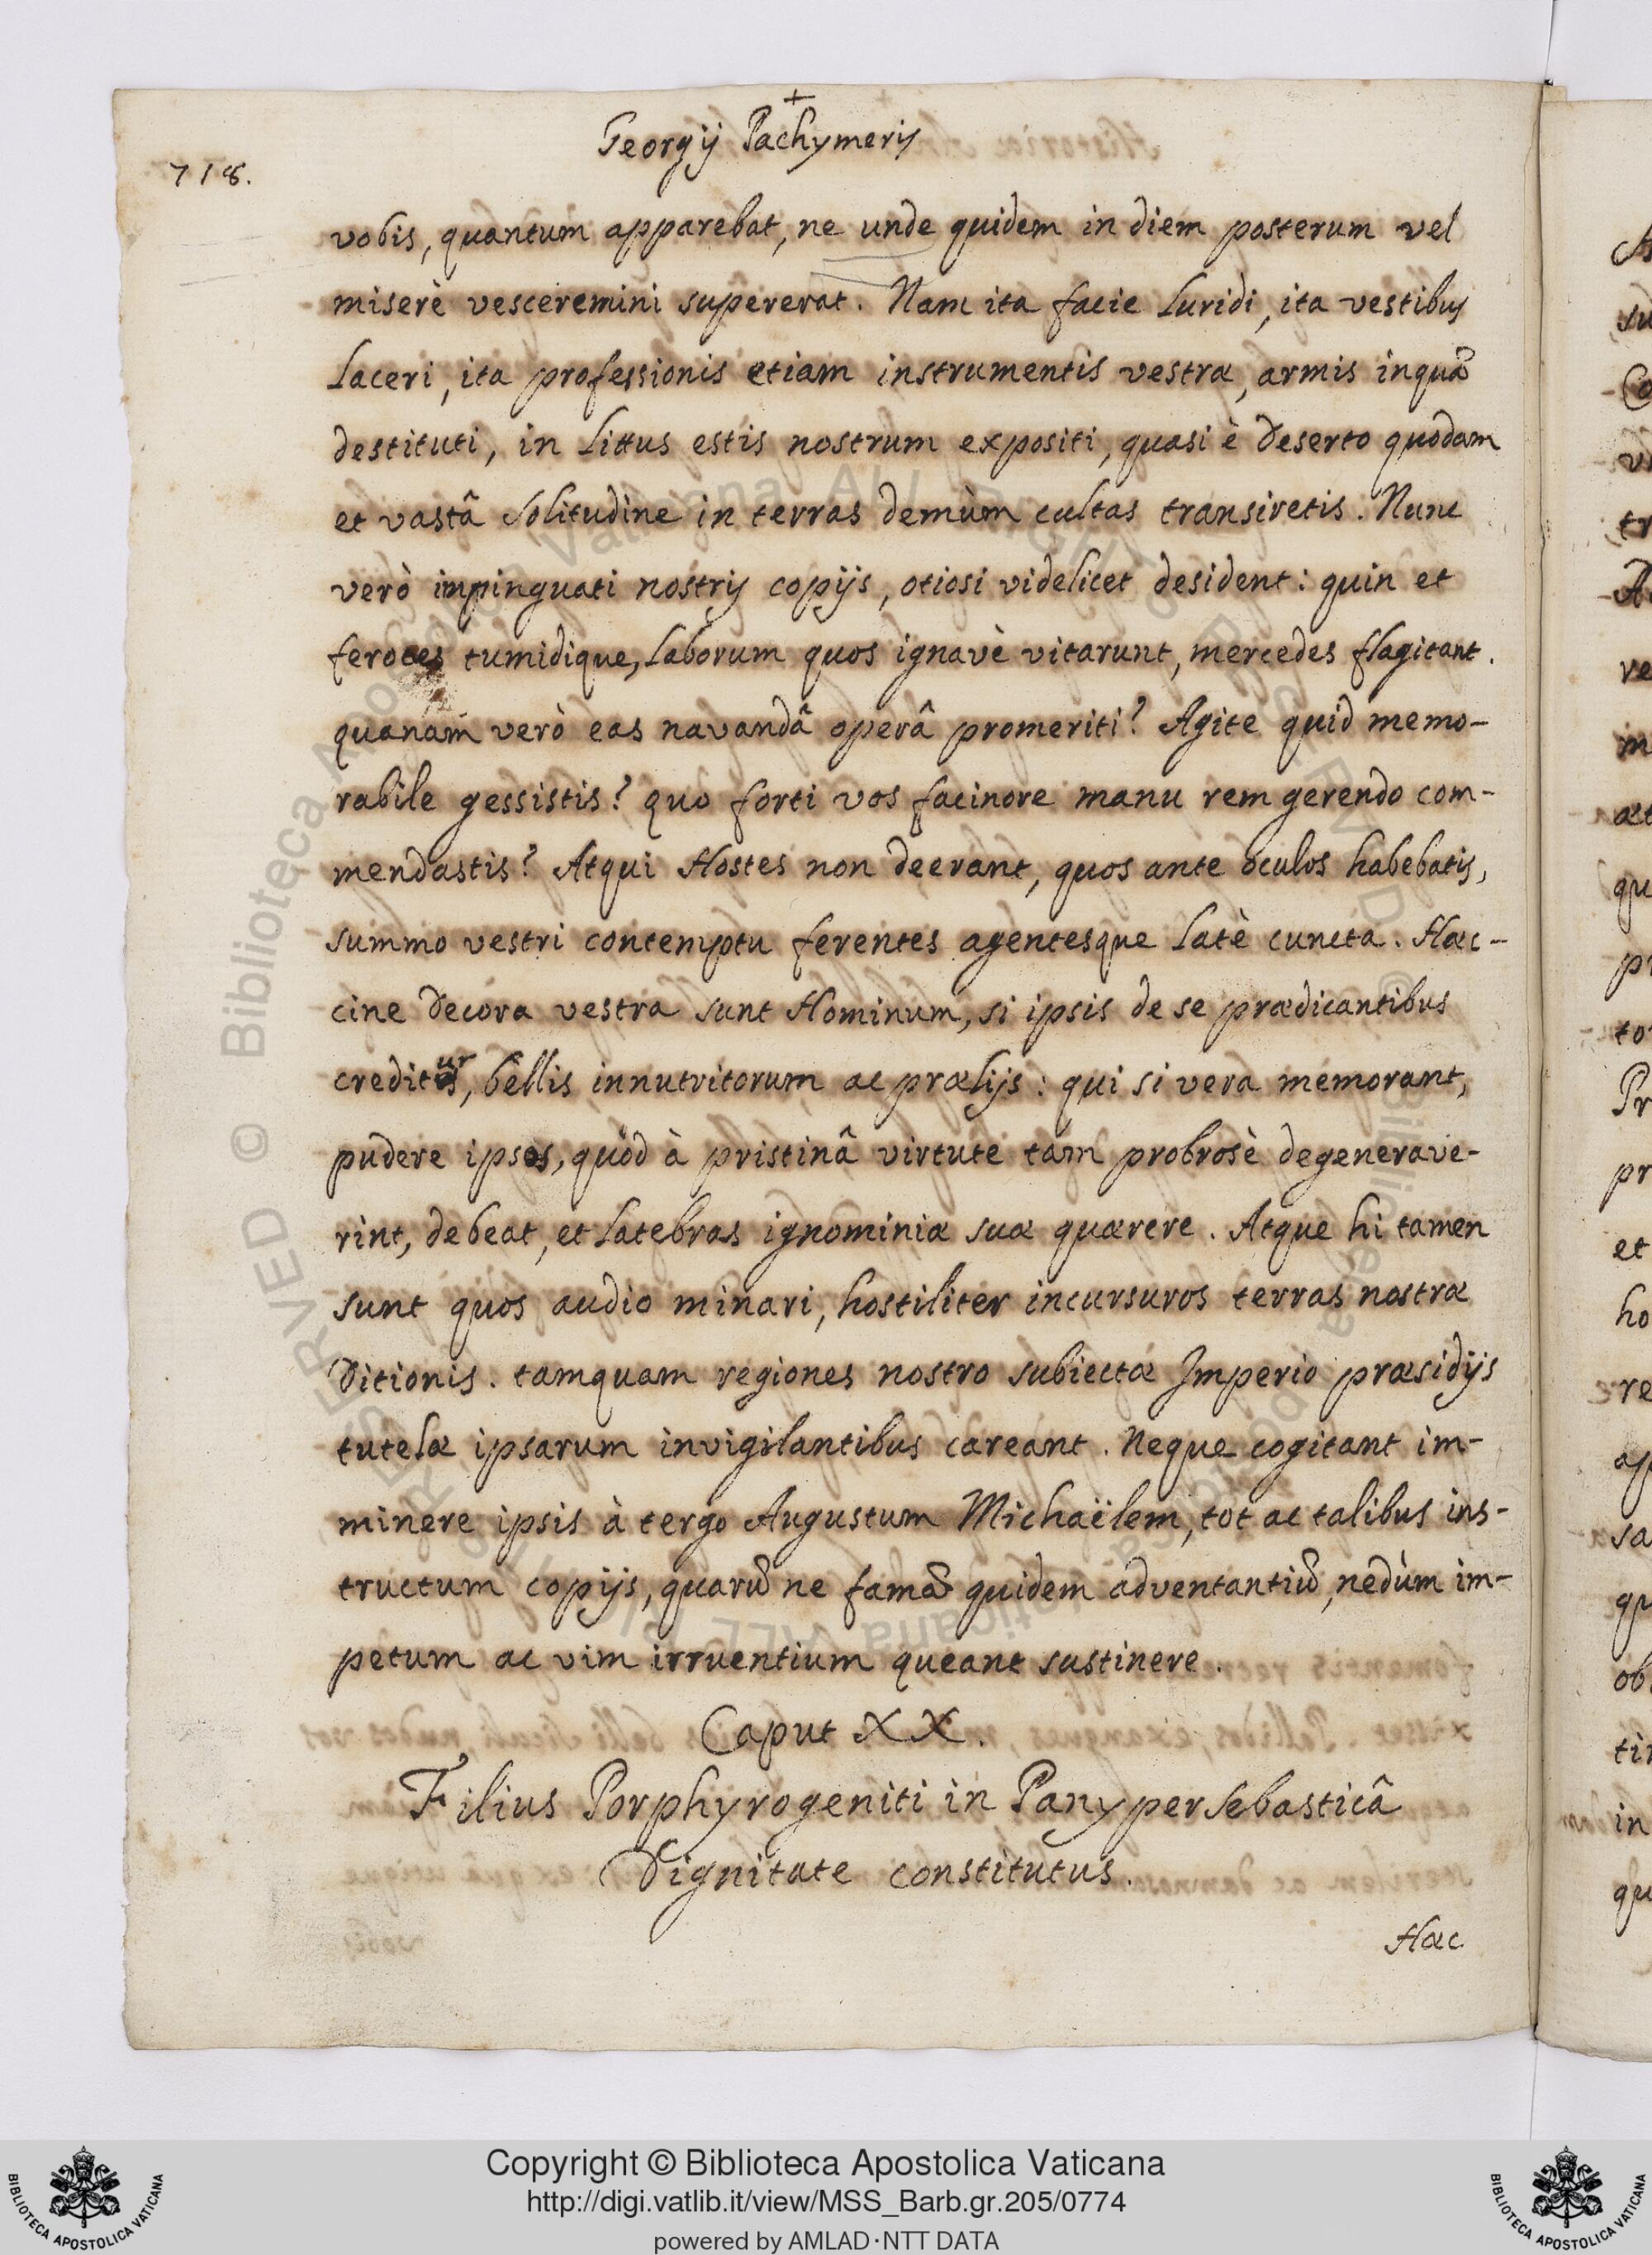 Georgij Pachymeris
718.
vobis, quantum apparebat, ne unde quidem in diem posterum vel
miserè vesceremini supererat. Nam ita facie luridi, ita vestibus
laceri, ita professionis etiam instrumentis vestræ, armis inquã
destituti, in littus estis nostrum expositi, quasi è deserto quodam
et vastâ solitudine in terras demùm cultas transiretis. Nunc
verò impinguati nostris copijs, otiosi videlicet desident: quin et
feroces tumidique, laborum quos ignavè vitarunt, mercedes flagitant.
quanam verò eas navandâ operâ promeriti? Agite quid memo-
rabile gessistis? quo forti vos facinore manu rem gerendo com-
mendastis? Atqui Hostes non deerant, quos ante oculos habebatis,
summo vestri contemptu ferentes agentesque latè cuncta. Hæc-
cine decora vestra sunt Hominum, si ipsis de se prædicantibus
creditur, bellis innutritorum ac prælijs: qui si vera memorant,
pudere ipsos, quòd à pristinâ virtute tam probrosè degenerave-
rint, debeat, et latebras ignominiæ suæ quærere. Atque hi tamen
sunt quos audio minari, hostiliter incursuros terras nostræ
Ditionis. tamquam regiones nostro subiectæ Imperio præsidijs
tutelæ ipsarum invigilantibus careant. Neque cogitant im-
minere ipsis à tergo Augustum Michaëlem, tot ac talibus ins-
tructum copijs, quarũ ne famã quidem adventantiũ, nedùm im-
petum ac vim irruentium queant sustinere.
Caput XX.
Filius Porphyrogeniti in Panypersebasticâ
Dignitate constitutus.
Hæc
Copyright © Biblioteca Apostolica Vaticana
http://digi.vatlib.it/view/MSS_Barb.gr.205/0774
powered by AMLAD·NTT DATA
BIBLIOTECA APOSTOLICA VATICANA
BIBLIOTECA APOSTOLICA VATICANA